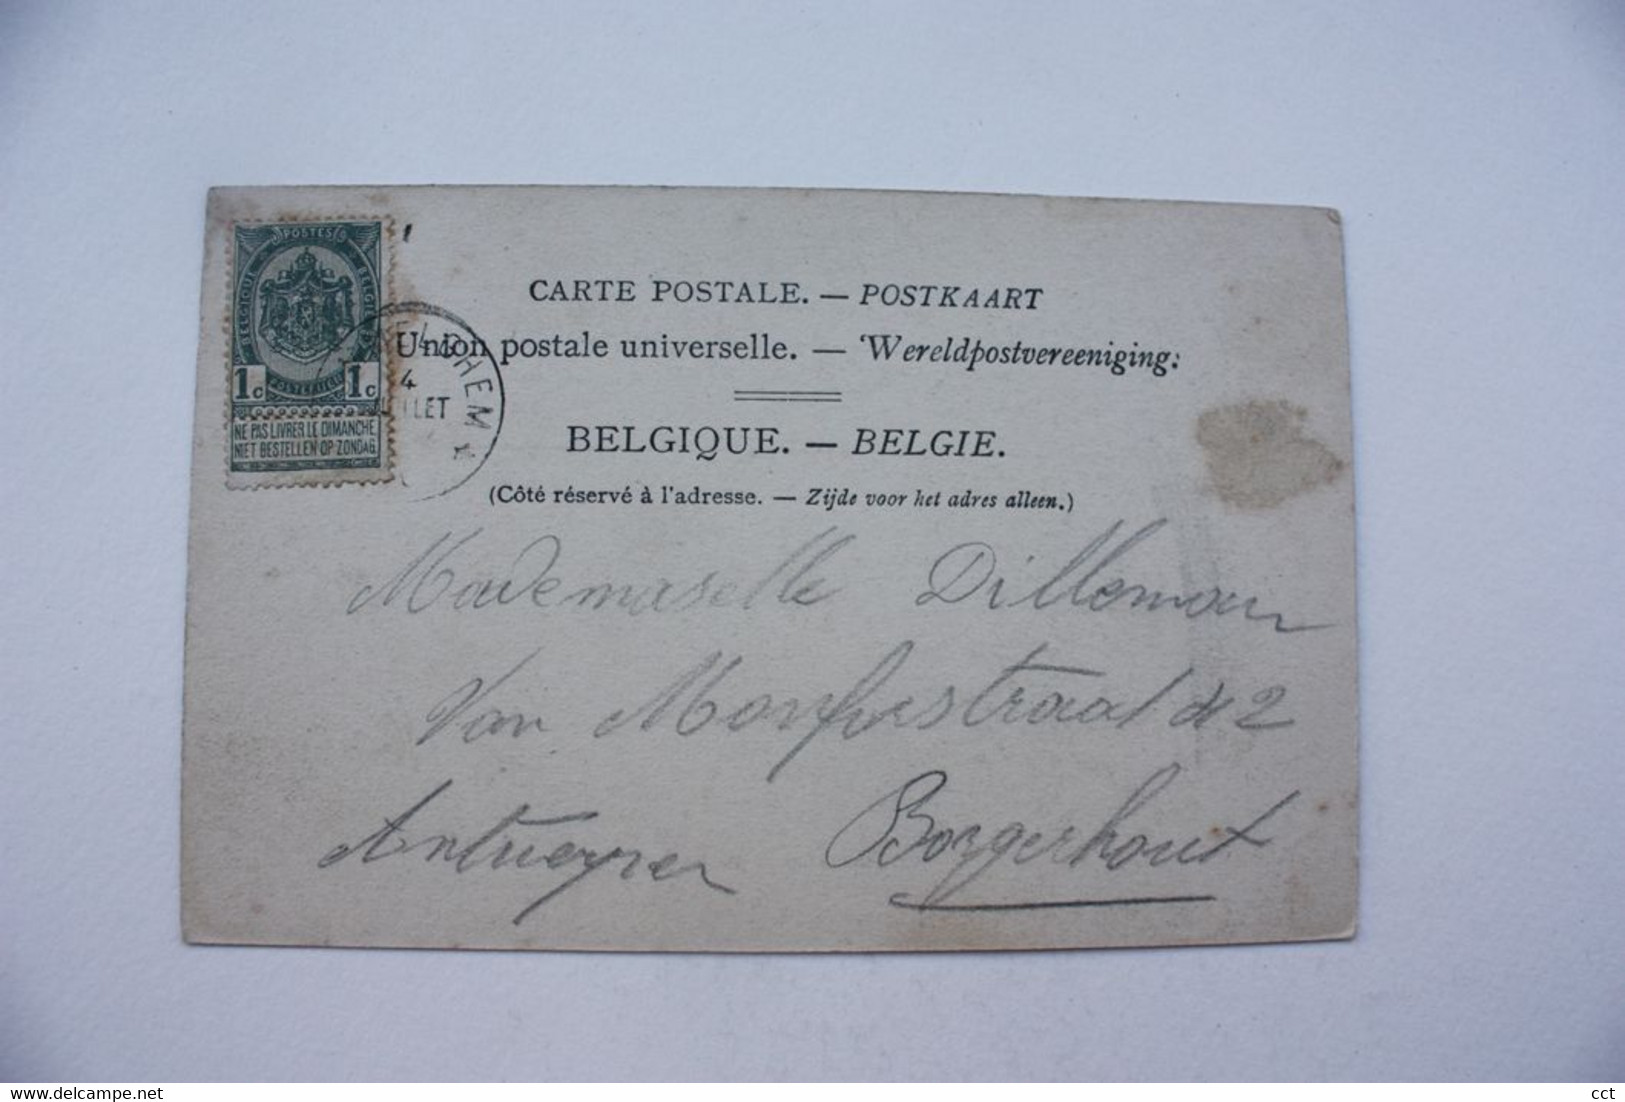 POSTES
BELGIQUE
BELGIE
1c POSTERIJEN 1c
NE PAS LIVRER LE DIMANCHE
NIET BESTELLEN OP ZONDAG
HEM
4
CARTE POSTALE. — POSTKAART
Union postale universelle. — Wereldpostvereeniging.
BELGIQUE. — BELGIE.
(Côté réservé à l'adresse. — Zijde voor het adres alleen.)
Mademaselle
Van straat 2
Antwerpen Borgerhout
www.delcampe.net
cct